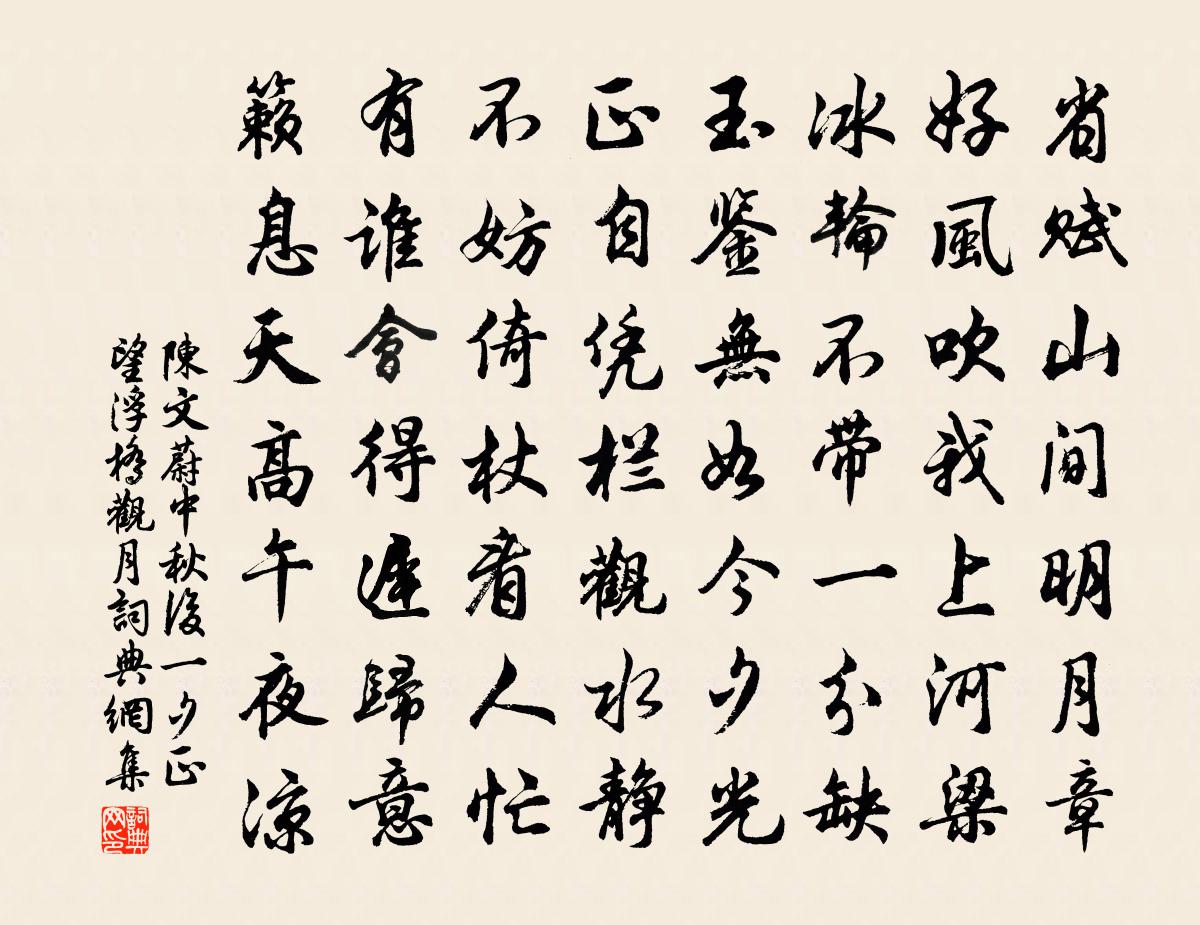 省赋山间明月章
好風吹我上河梁
冰輪不带一分缺
玉鉴無如今夕光
正自凭栏觀水静
不妨倚杖看人忙
有誰會得遲歸意
籁息天高午夜凉
陳文蔚中秋後一夕正
望浮橋觀月詞典網集
詞典
网印